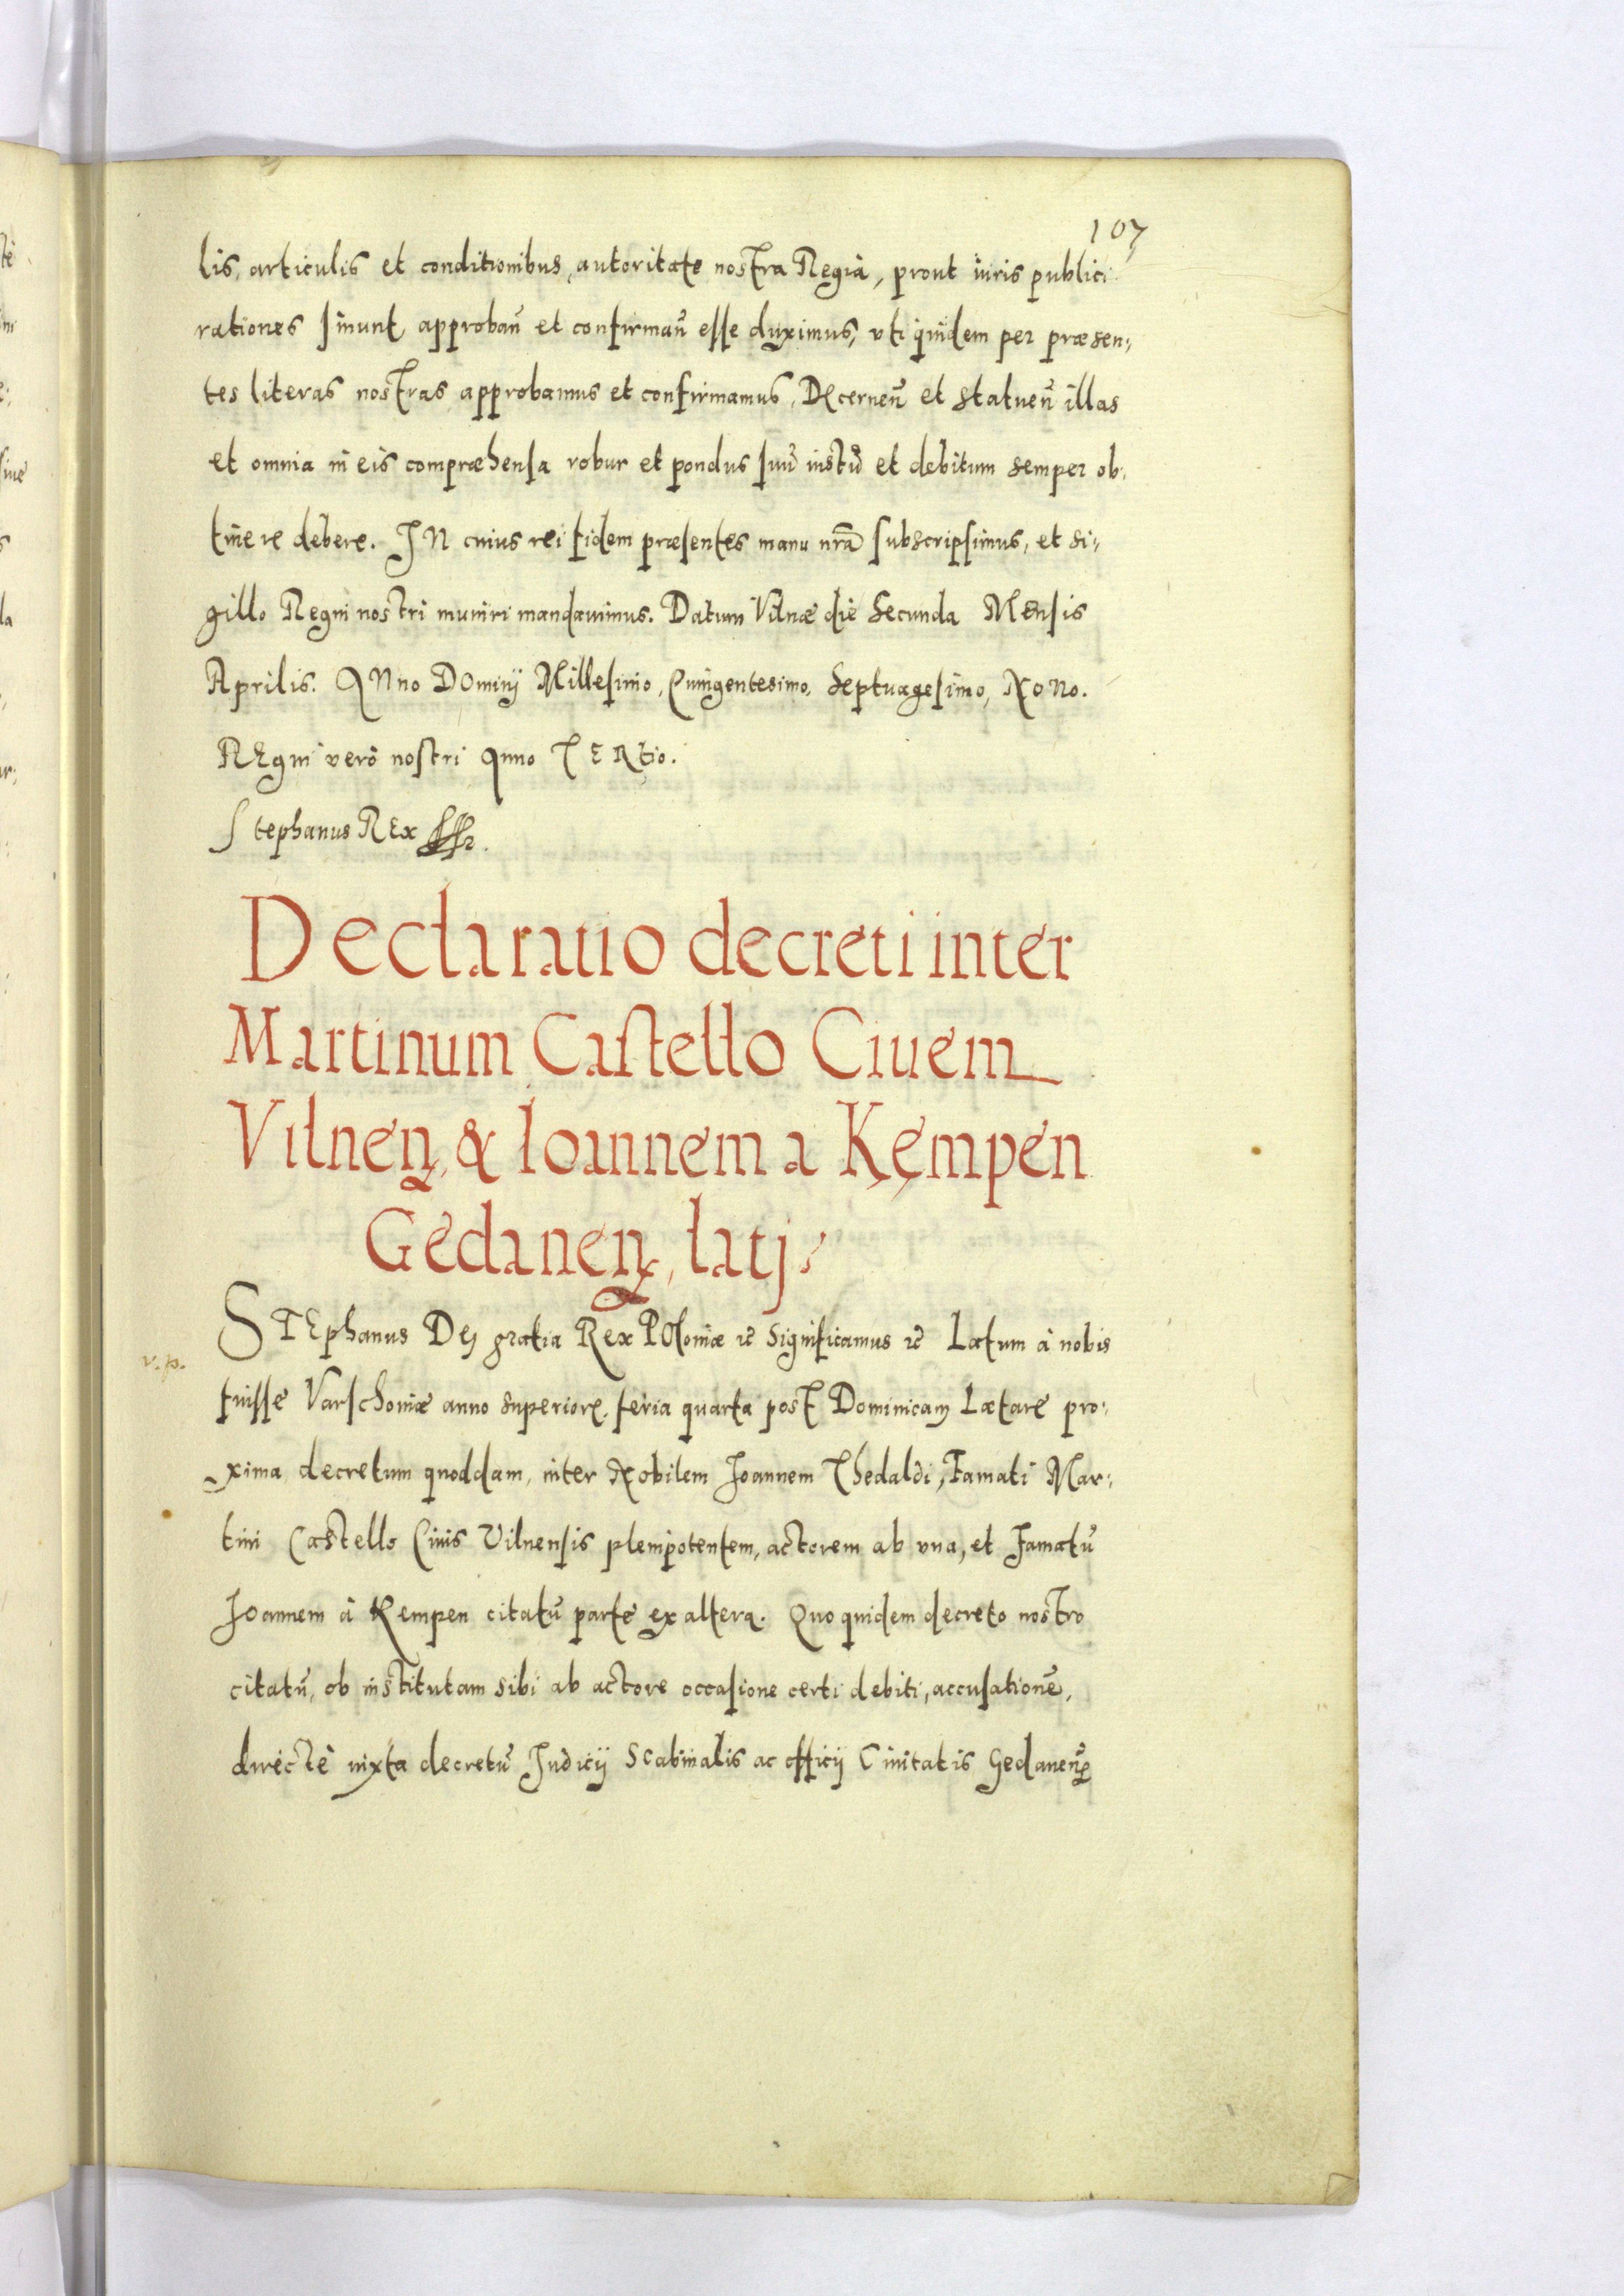 107
lis, articulis et conditionibus, autoritate nostra Regia, prout iuris publici
rationes sinunt, approbañ et confirmañ esse duximus, vti quidem per præsen,,
tes literas nostras approbamus et confirmamus, Decerneñ et statueñ illas
et omnia in eis compræhensa robur et pondus suũ iustũ et debitum semper ob,
tinere debere. IN cuius rei fidem præsentes manu nrã subscripsimus, et si,,
gillo Regni nostri muniri mandauimus. Datum Vilnæ die secunda Mensis
Aprilis. ANno DOminij Millesimo, Quingentesimo, Septuagesimo, NoNo.
REgni verò nostri Anno TERtio.
Stephanus REx
Declaratio decreti inter
Martinum Castello Ciuem
Vilnen, & Ioannem a Kempen
Gedanen, latj.
v. p.
STEphanus Dej gratia Rex POloniæ &c Significamus &c Latum à nobis
fuisse Varschouiæ anno superiore, feria quarta post Dominicam Lætare pro,
xima decretum quoddam, inter Nobilem Joannem Thedaldi, Famati Mar,
tini Castello Ciuis Vilnensis plenipotentem, actorem ab vna, et Famatũ
Joannem à Kempen citatũ parte ex altera. Quo quidem decreto nostro
citatũ, ob institutam sibi ab actore occasione certi debiti, accusationẽ,
directè iuxta decretũ Judicij Scabinalis ac officij Ciuitatis Gedaneñ